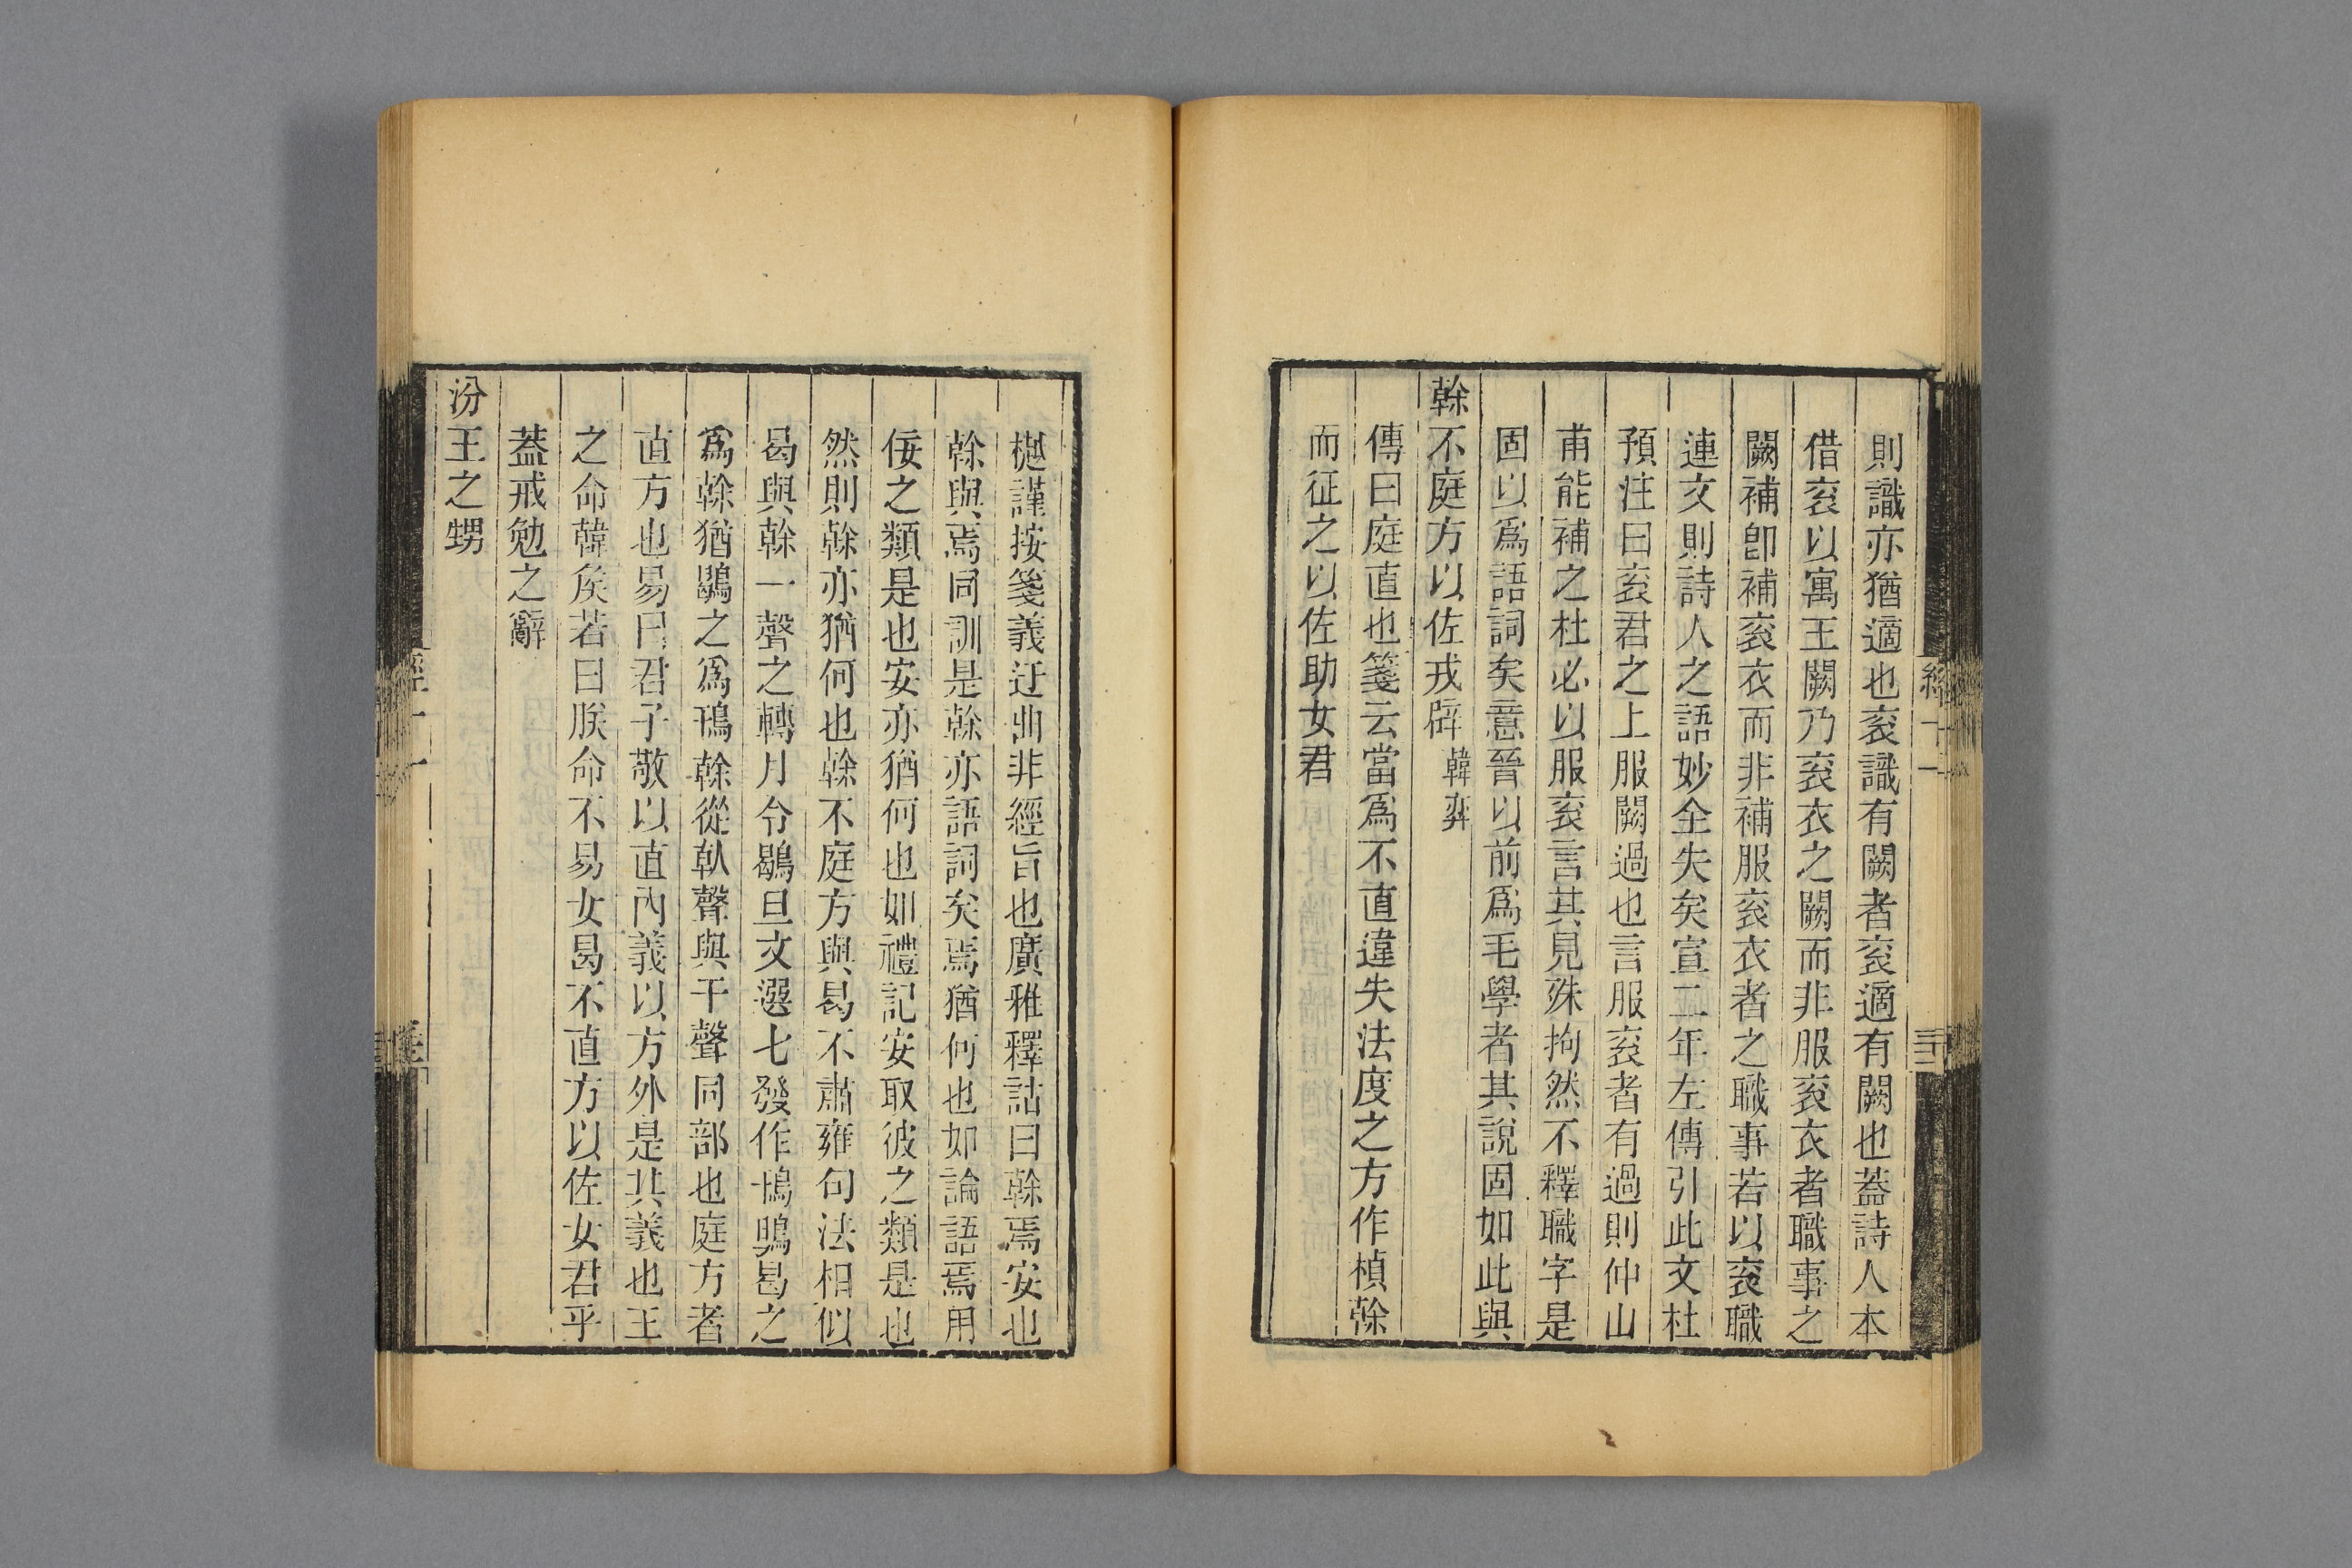 則識亦猶適也衮識有闕者衮適有闕也葢詩人本
借衮以寓王闕乃衮衣之闕而非服衮衣者職事之
闕補卽補衮衣而非補服衮衣者之職事若以衮職
連文則詩人之語妙全失矣宣二年左傳引此文杜
預注曰衮君之上服闕過也言服衮者有過則仲山
甫能補之杜必以服衮言其見殊拘然不釋職字是
固以爲語詞矣意晉以前爲毛學者其說固如此與
榦不庭方以佐戎辟 韓奕
傳曰庭直也箋云當爲不直違失法度之方作楨榦
而征之以佐助女君
樾謹按箋義迂曲非經旨也廣雅釋詁曰榦焉安也
榦與焉同訓是榦亦語詞矣焉猶何也如論語焉用
佞之類是也安亦猶何也如禮記安取彼之類是也
然則榦亦猶何也榦不庭方與曷不肅雍句法相似
曷與榦一聲之轉月令鶡旦文選七發作鳱鴠曷之
爲榦猶鶡之爲鳱榦從倝聲與干聲同部也庭方者
直方也易曰君子敬以直內義以方外是其義也王
之命韓矦若曰朕命不易女曷不直方以佐女君乎
葢戒勉之辭
汾王之甥